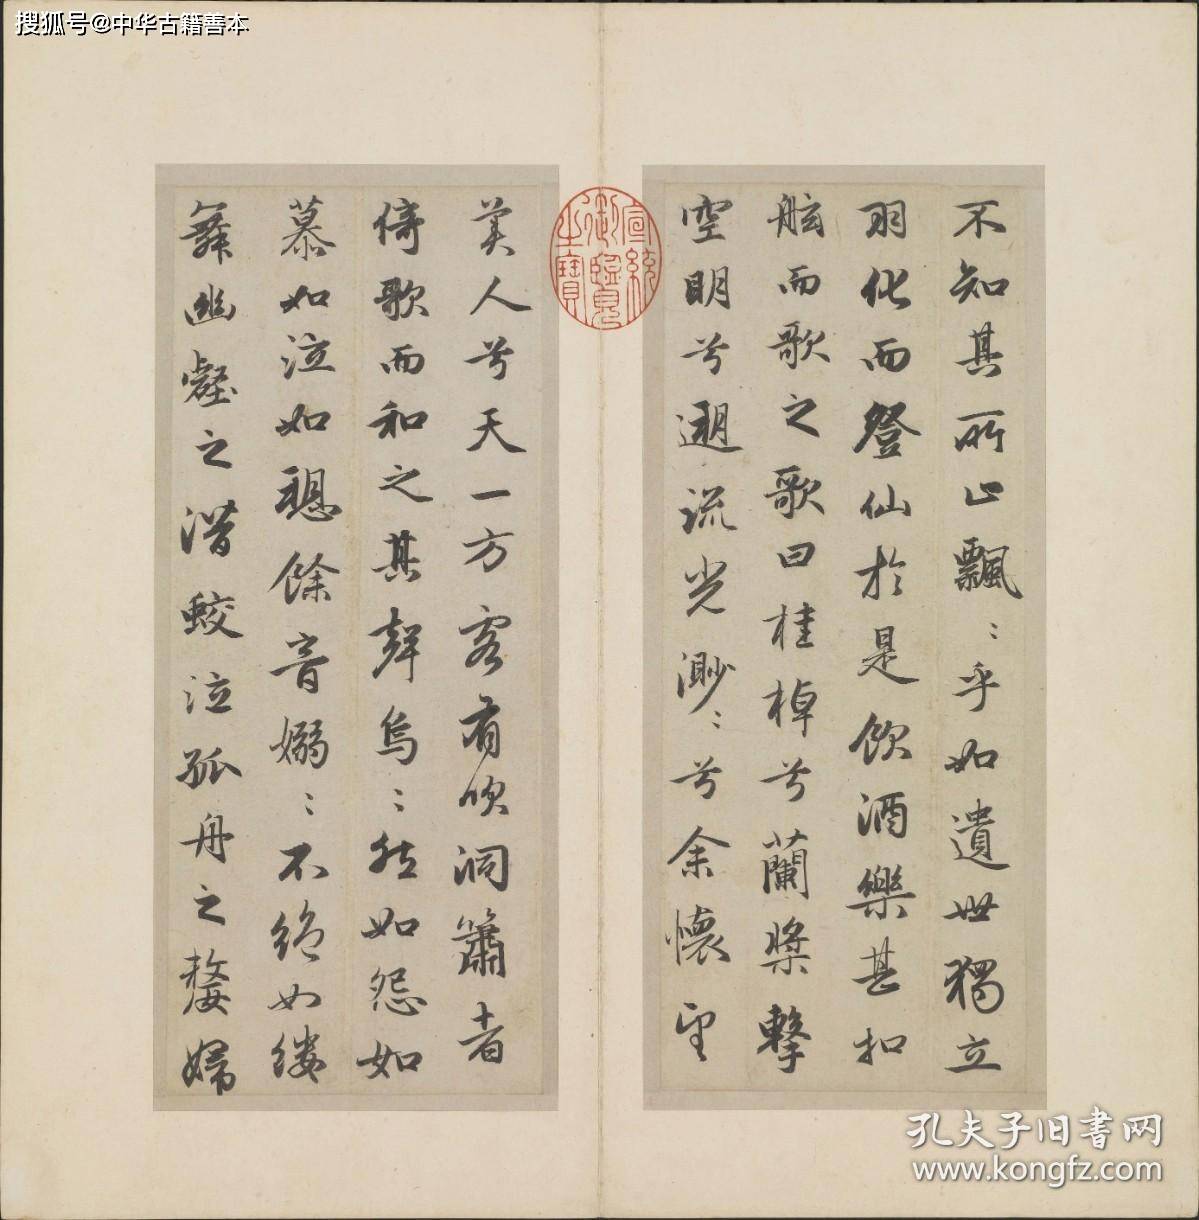 搜狐号@中华古籍善本
不知其所止飄〻乎如遺世獨立
羽化而登仙於是飲酒樂甚扣
舷而歌之歌曰桂棹兮蘭槳擊
空明兮遡流光渺〻兮余懷望
宣統
御覽
之寶
美人兮天一方客有吹洞簫者
倚歌而和之其聲烏〻然如怨如
慕如泣如愬餘音嫋〻不絕如縷
舞幽壑之潛蛟泣孤舟之嫠婦
孔夫子旧书网
www.kongfz.com